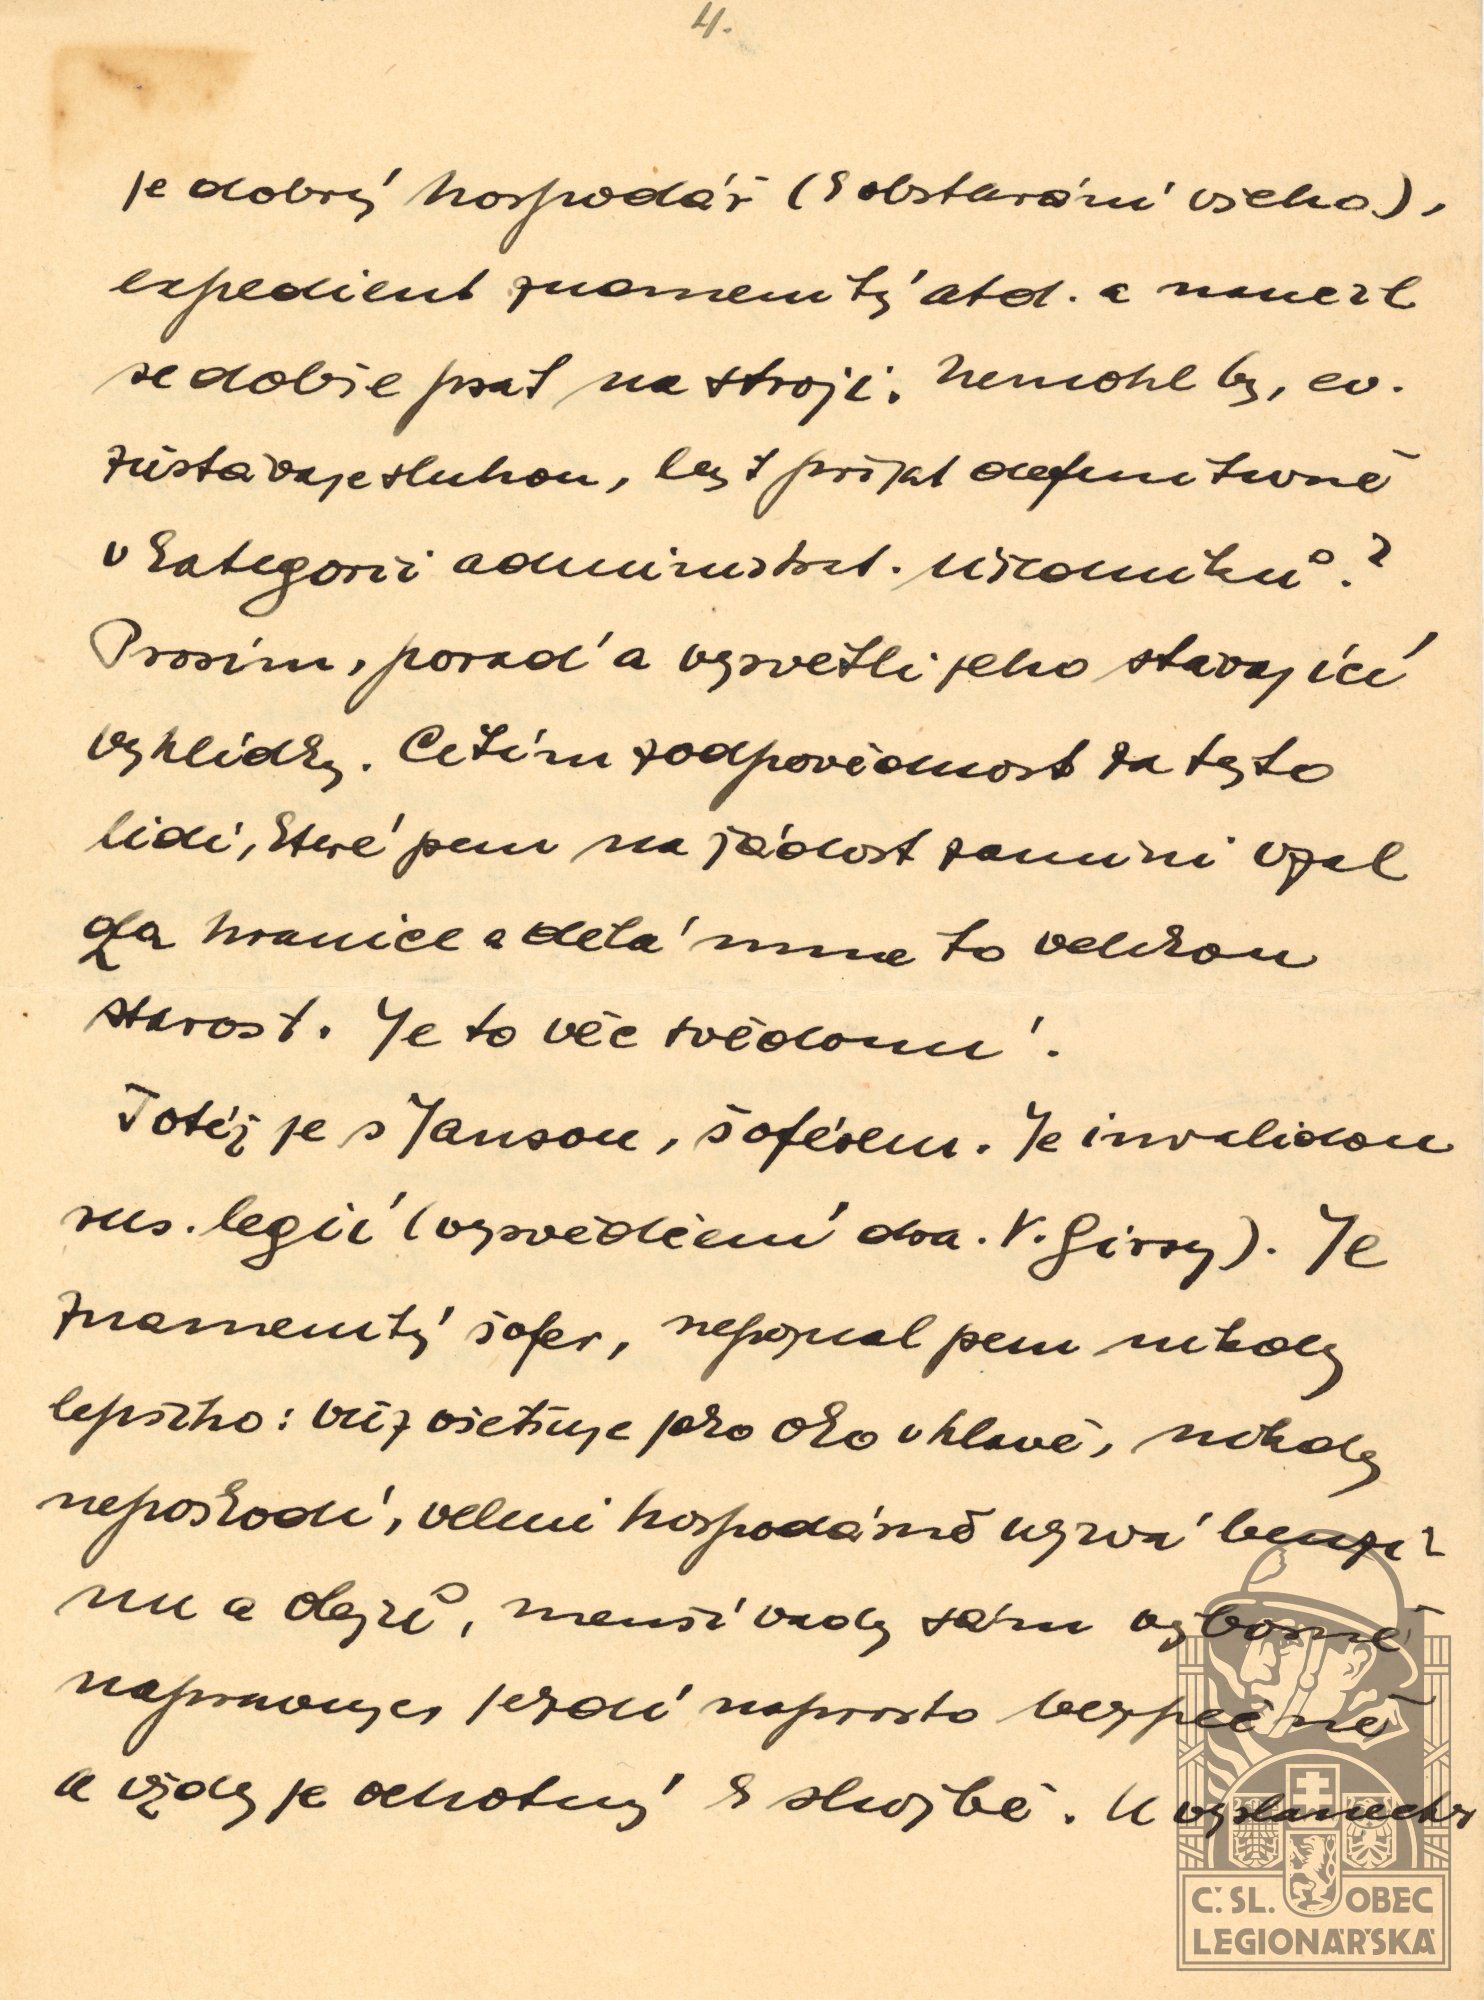 4.
je dobrý hospodář (k obstarání všeho),
expedient znamenitý atd. a naučil
se dobře psát na stroji. Nemohl by, ev.
zůstávaje sluhou, být přijat definitivně
v kategorii administrat. úředníků?
Prosím, poraď a vysvětli jeho stávající
vyhlídky. Cítím zodpovědnost za tyto
lidi, které jsem na žádost zamini vzal
za hranice a dělá mne to velkou
starost. Je to věc svědomí.
Totéž je s Jansou, šoférem. Je invalidou
rus. legií (vysvědčení dra. V. Girsy). Je
znamenitý šofer, nepoznal jsem nikdy
lepšího: vůz ošetřuje jako oko v hlavě, nikdy
nepoškodí, velmi hospodárně užívá benzi-
nu a olejů, menší vady sám výborně
napravuje, jezdí naprosto bezpečně
a vždy je ochotný k službě. U vyslanectv
Č. SL. OBEC
LEGIONÁŘSKÁ